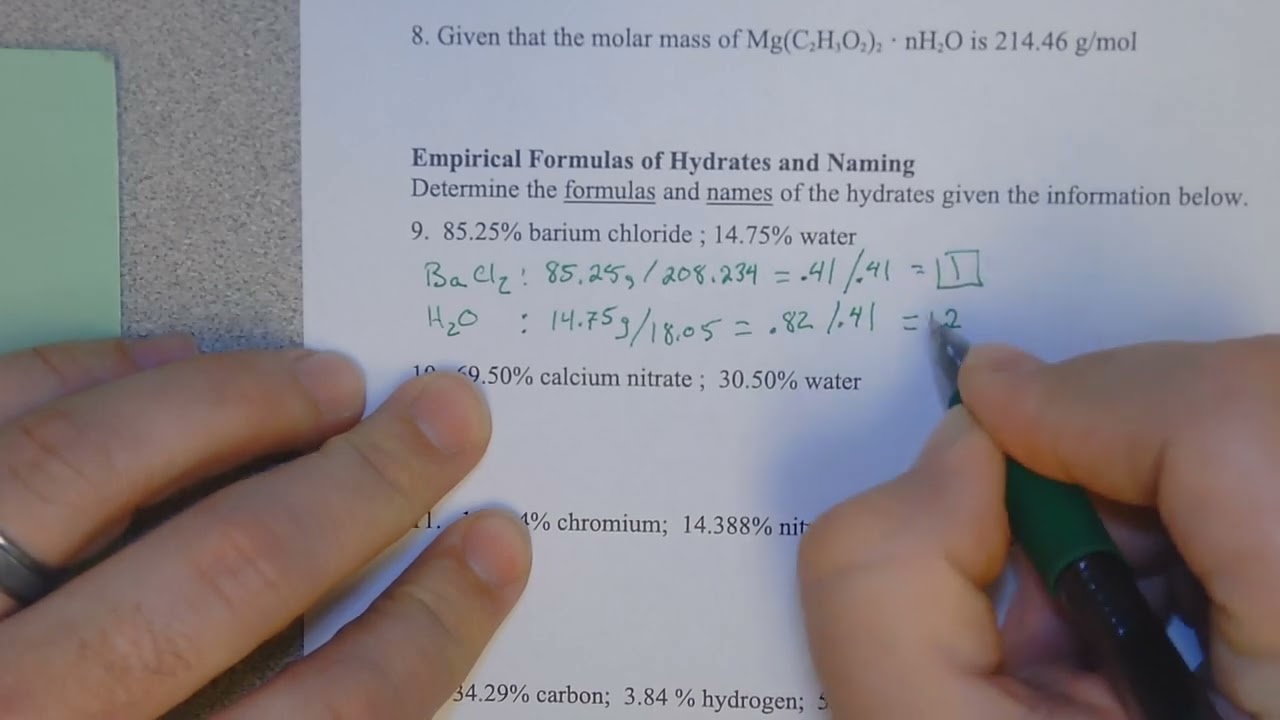 8. Given that the molar mass of Mg(C₂H₃O₂)₂ · nH₂O is 214.46 g/mol
Empirical Formulas of Hydrates and Naming
Determine the formulas and names of the hydrates given the information below.
9. 85.25% barium chloride ; 14.75% water
BaCl₂ : 85.25g / 208.234 = .41 / .41 = 1
H₂O : 14.75g / 18.05 = .82 / .41 = 2
9.50% calcium nitrate ; 30.50% water
11. 4% chromium; 14.388%
34.29% carbon; 3.84 % hydrogen;